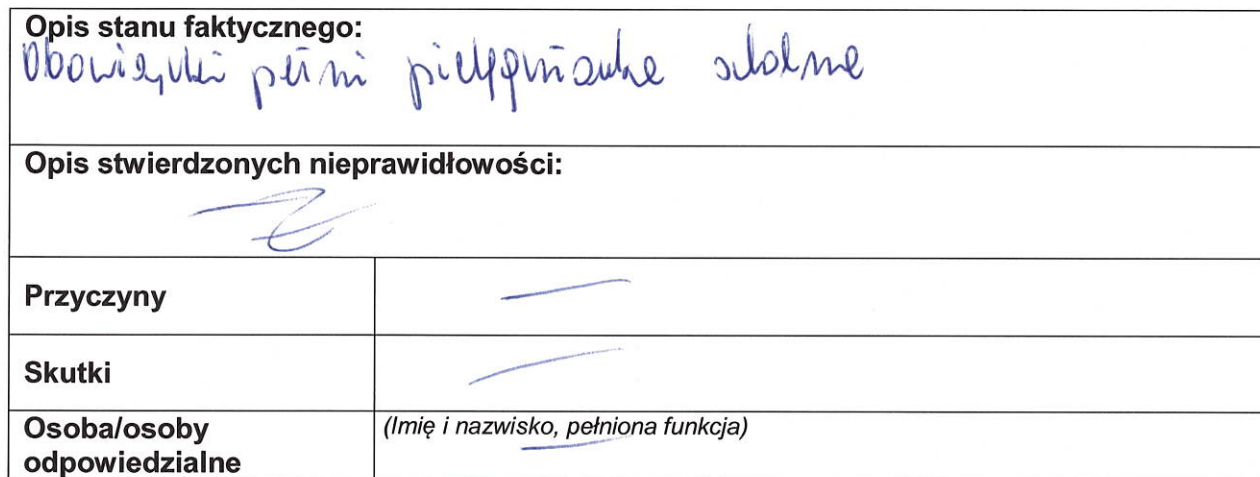 Opis stanu faktycznego:
Obowiązki pełni pielęgniarka szkolna
Opis stwierdzonych nieprawidłowości:
Przyczyny —
Skutki —
Osoba/osoby odpowiedzialne (Imię i nazwisko, pełniona funkcja)
—